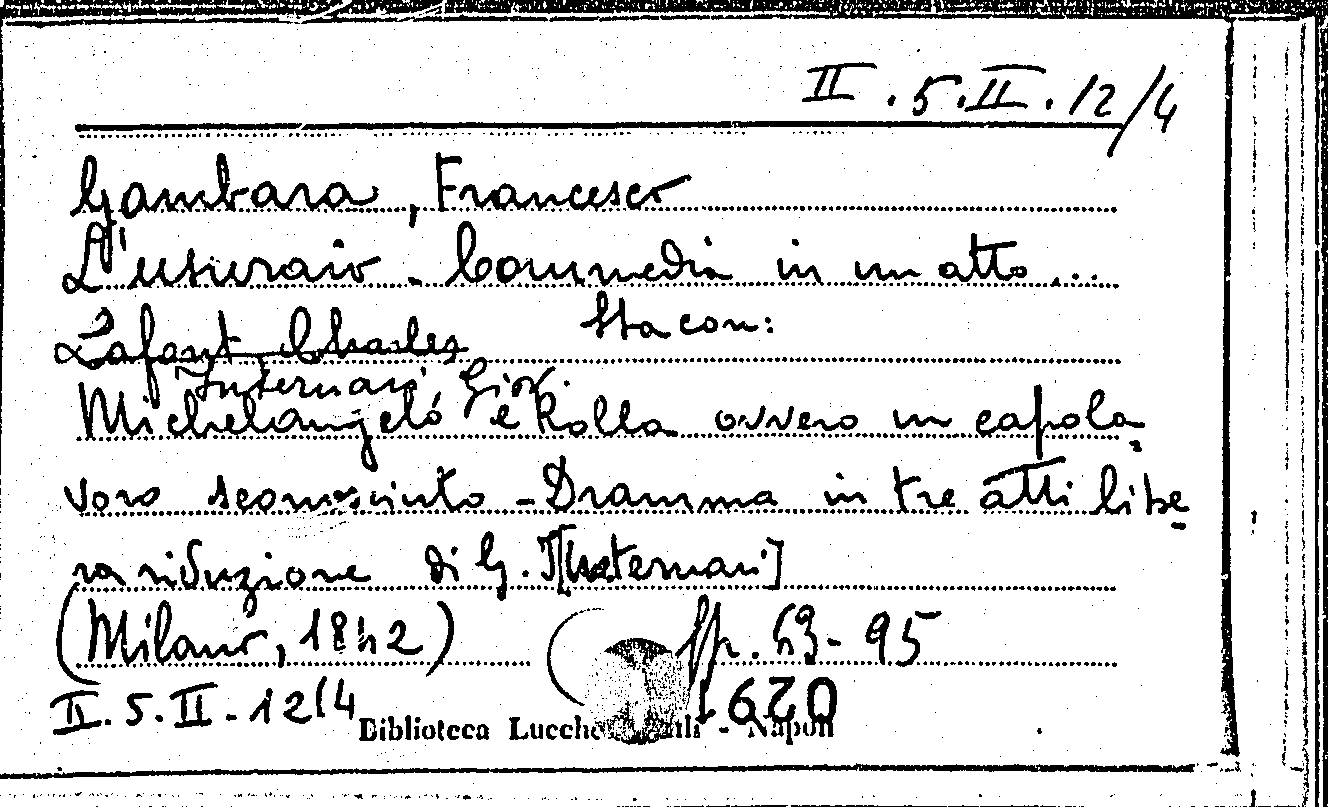 II.5.II.12/4
Gambara, Francesco
L'usuraio - Commedia in un atto...
Sta con:
Lafont, Charles
Internari, Giov.
Michelangelo e Rolla ovvero un capola-
voro sconosciuto - Dramma in tre atti libe-
ra riduzione di G. I[nternari]
(Milano, 1842) pp. 63-95
II.5.II-12/4
Biblioteca Lucchesi - Napoli